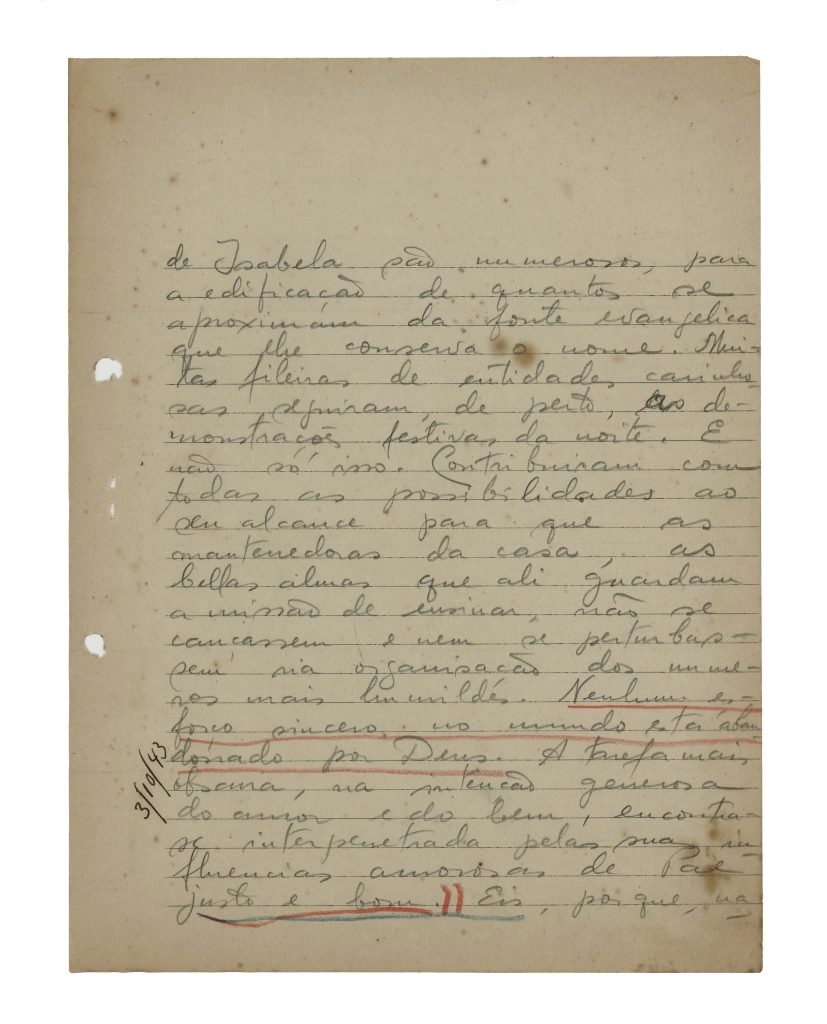 de Isabela são numerosos, para
a edificação de quantos se
aproximám da fonte evangelica
que lhe conserva o nome. Mui-
tas fileiras de entidades carinho-
sas seguiram, de perto, as de-
monstrações festivas da noite. E
não só isso. Contribuiram com
todas as possibilidades ao
seu alcance para que as
mantenedoras da casa, as
bellas almas que ali guardam
a missão de ensinar, não se
cançassem e nem se perturbas-
sem na organisação dos nume-
ros mais humildes. Nenhum es-
forço sincero no mundo está aban
donado por Deus. A tarefa mais
obscura, na intenção generosa
do amor e do bem, encontra-
se interpenetrada pelas suas in-
fluencias amorosas de Pae
justo e bom.)) Eis, porque, na-
3/10/43